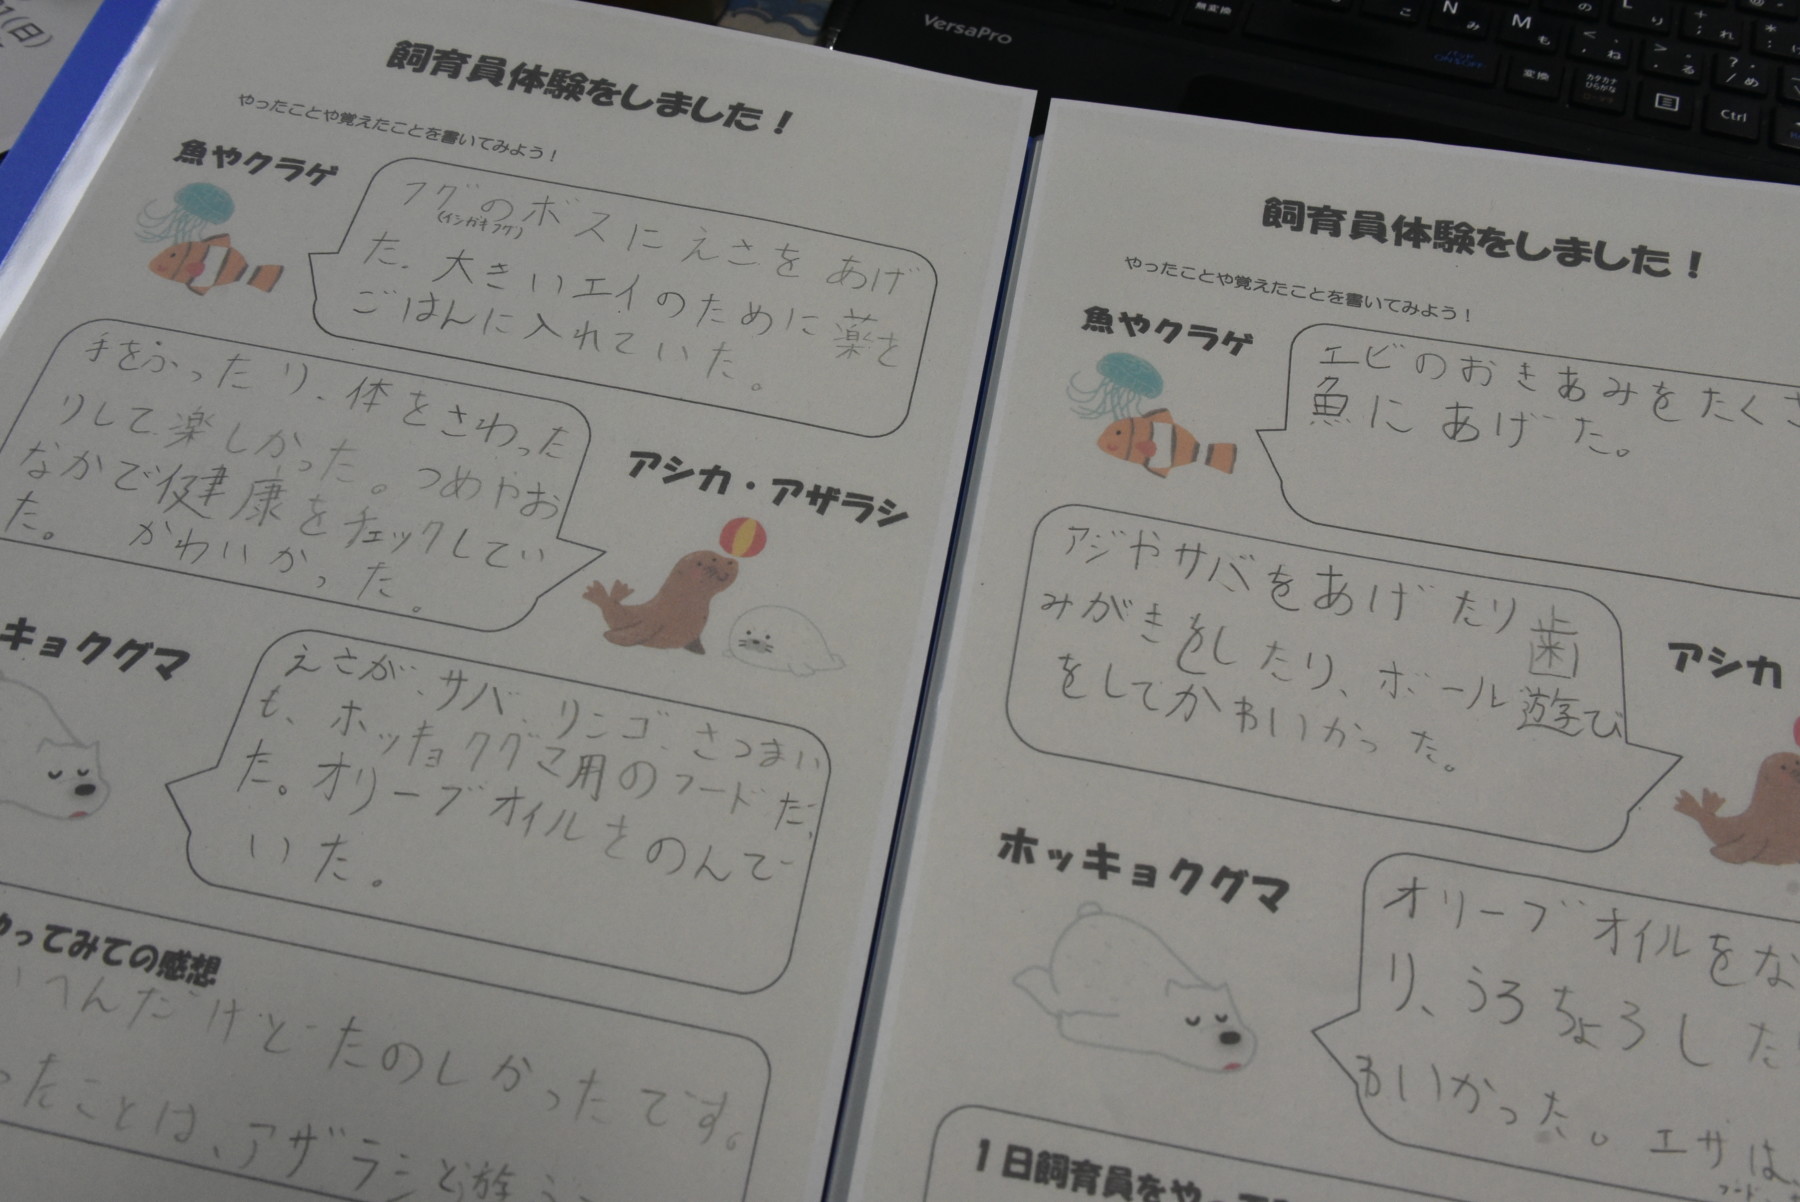 (日)
VersaPro
無変換
N
み
M
も
ね
る
め
り
れ
変換
カタカナ
ひらがな
Ctrl
飼育員体験をしました！
やったことや覚えたことを書いてみよう！
魚やクラゲ
フグのボスにえさをあげ
(イシガキフグ)
た。大きいエイのために薬を
ごはんに入れていた。
手をふったり、体をさわった
りして楽しかった。つめやお
なかで健康をチェックしてい
た。 かわいかった。
アシカ・アザラシ
キョクグマ
えさが、サバ、リンゴ、さつまい
も、ホッキョクグマ用のフードだっ
た。オリーブオイルをのんで
いた。
やってみての感想
へんだけどたのしかったです。
ったことは、アザラシと遊
飼育員体験をしました！
やったことや覚えたことを書いてみよう！
魚やクラゲ
エビのおきあみをたくさ
魚にあげた。
アジやサバをあげたり歯
みがきをしたり、ボール遊び
をしてかわいかった。
アシカ
ホッキョクグマ
オリーブオイルをな
り、うろちょろした
わいかった。エサは
1日飼育員をやっ